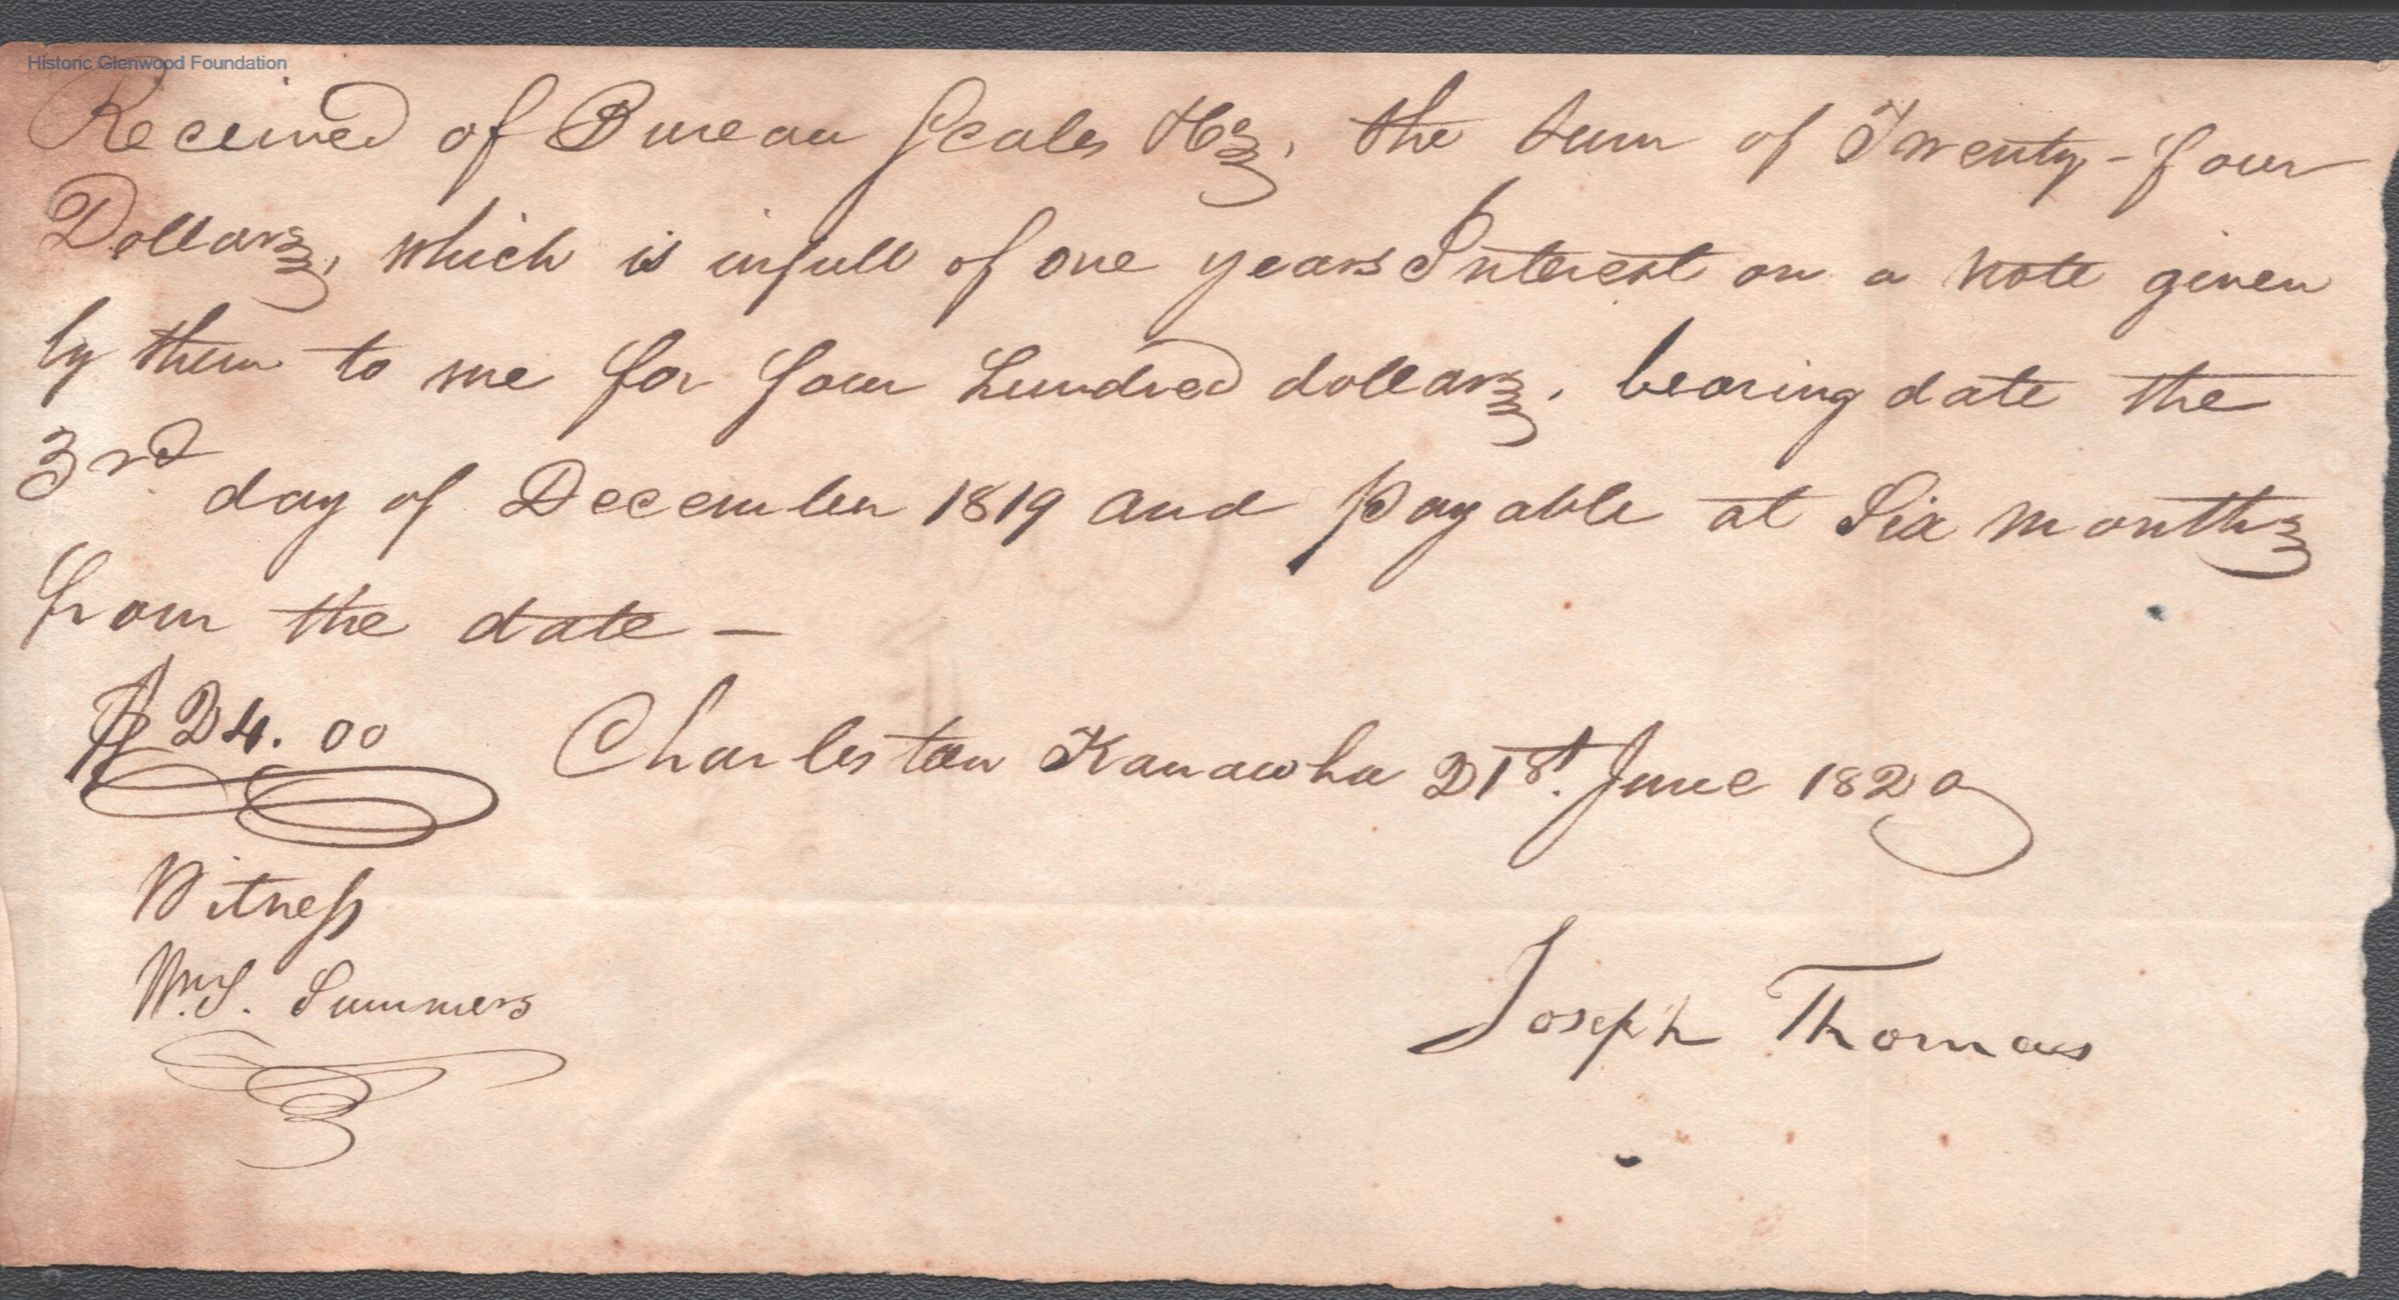 Historic Glenwood Foundation
Received of Bureau Scales &Co, the sum of Twenty-four
Dollars, which is infull of one years Interest on a note given
by them to me for four hundred dollars, bearing date the
3rd day of December 1819 and payable at Six months
from the date —
$24.00 Charleston Kanawha 21st. June 1820
Witness
Wm. S. Summers
Joseph Thomas